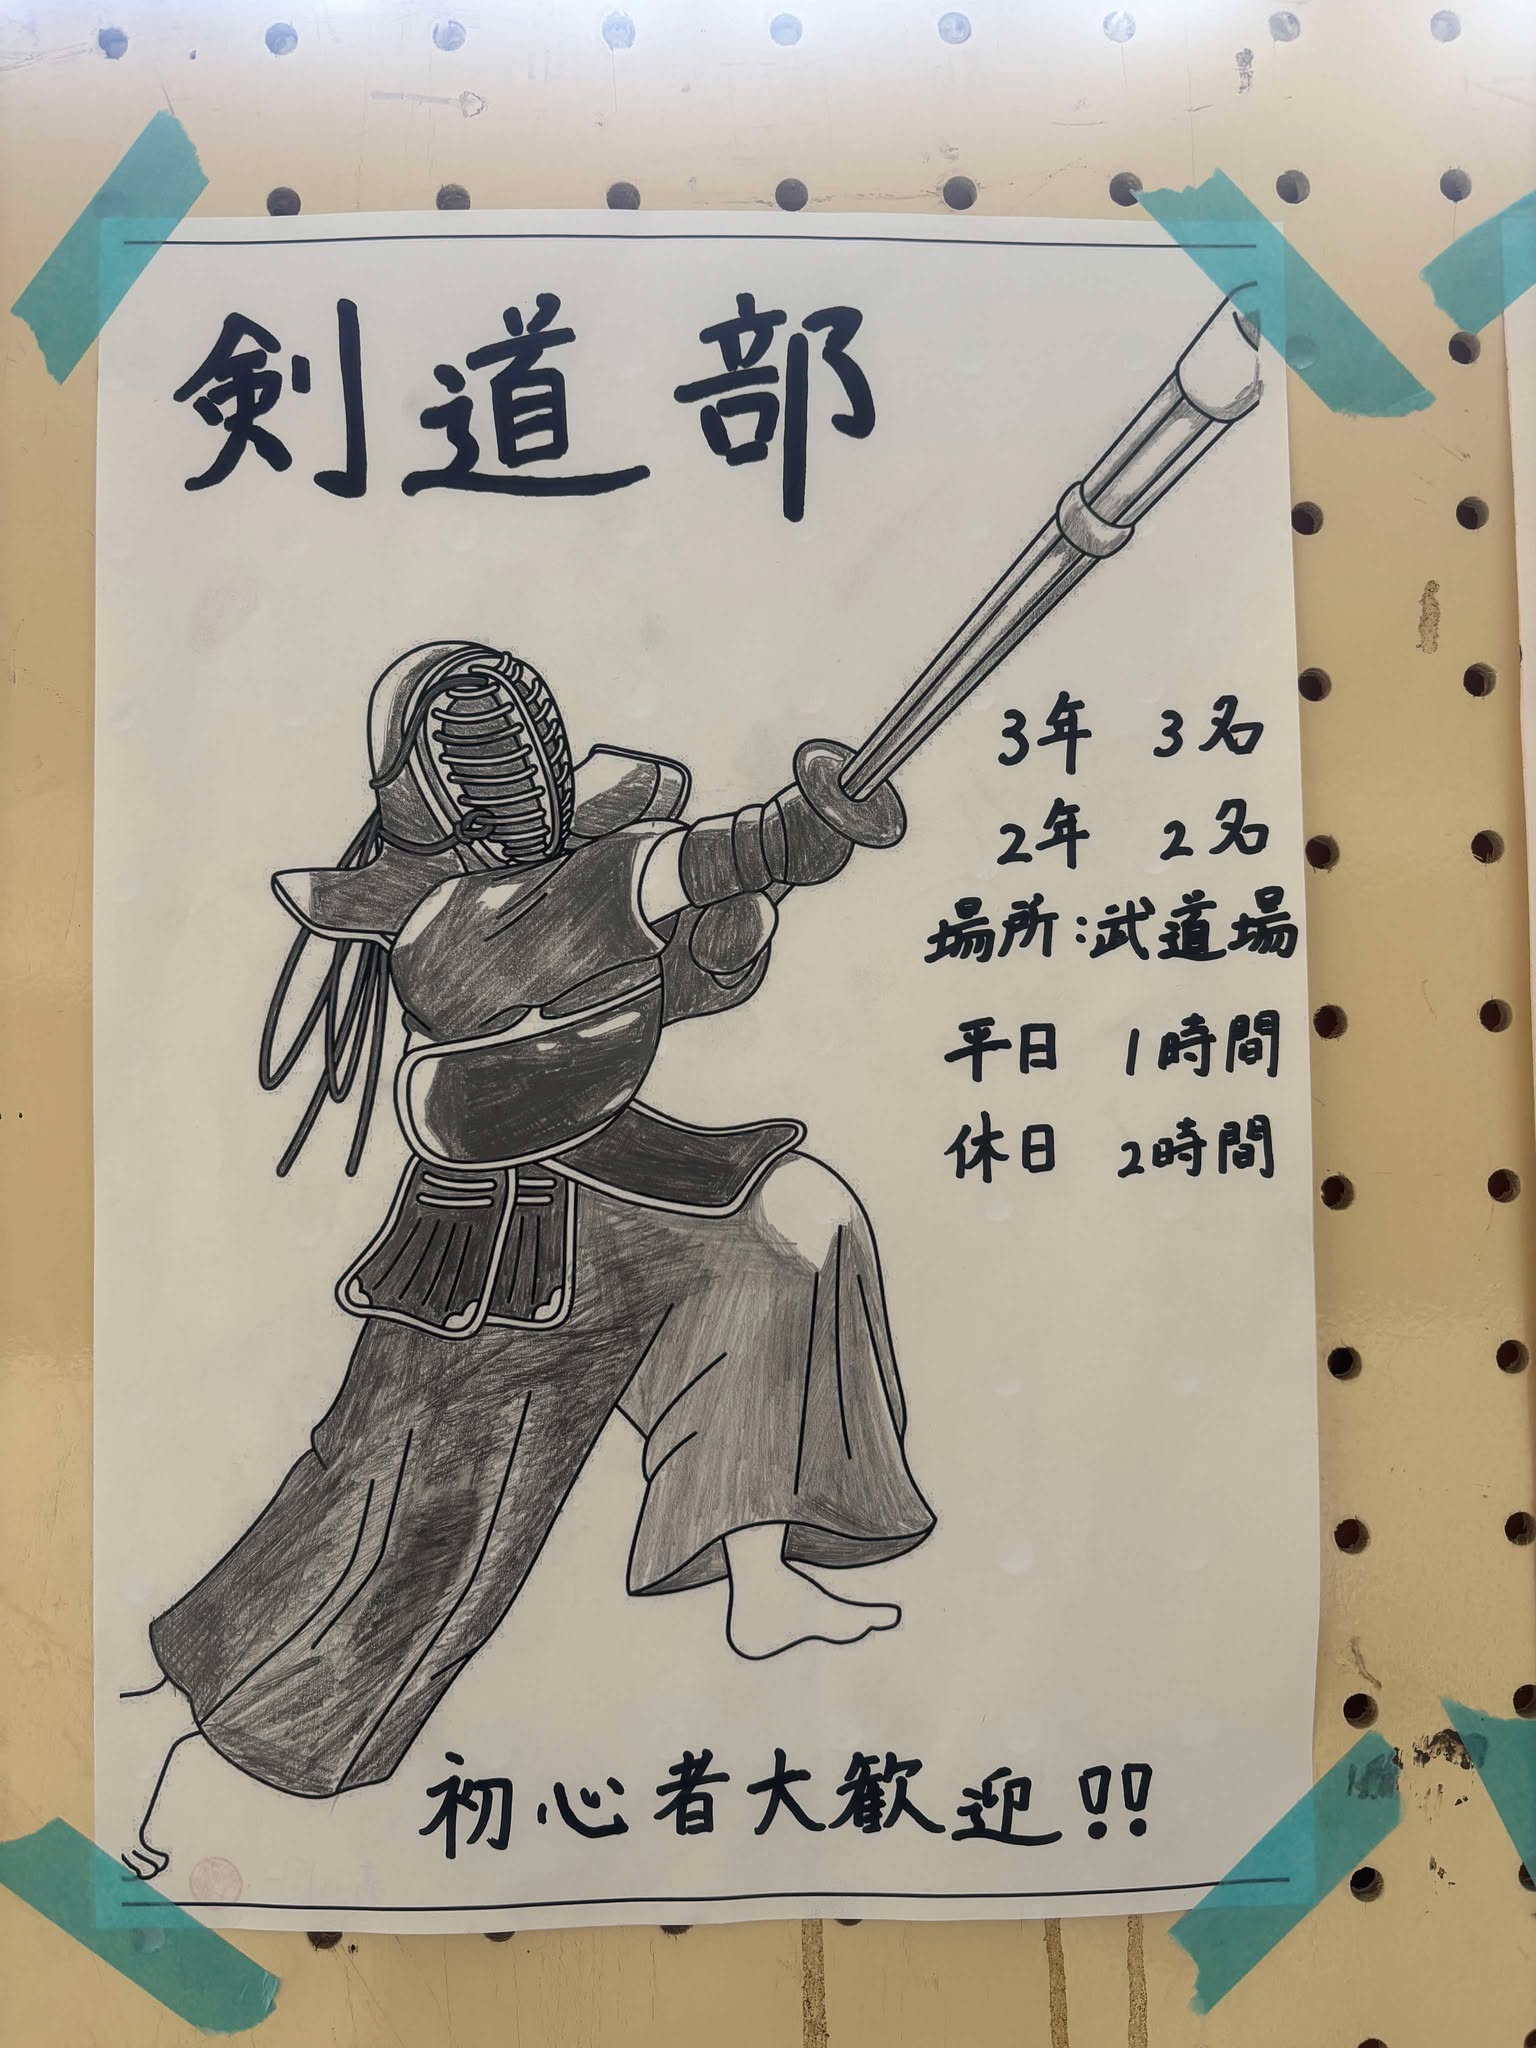 剣道部
3年 3名
2年 2名
場所:武道場
平日 1時間
休日 2時間
初心者大歓迎!!